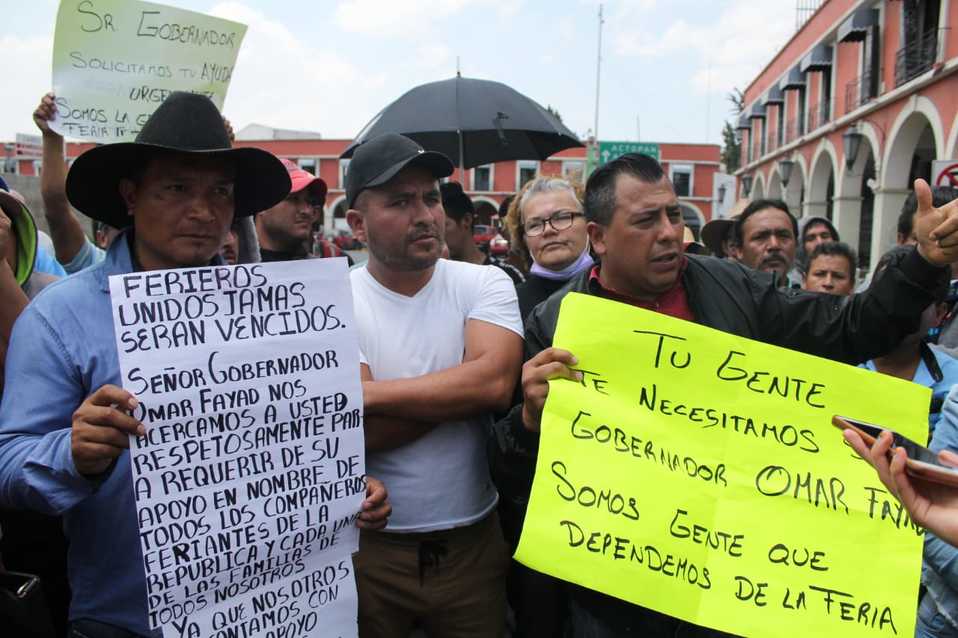 SR. GOBERNADOR
SOLICITAMOS TU AYUDA
URGENTE
SOMOS LA
FERIA
ACTOPAN
FERIEROS
UNIDOS JAMAS
SERAN VENCIDOS.
SEÑOR GOBERNADOR
OMAR FAYAD NOS
ACERCAMOS A USTED
RESPETOSAMENTE PAR
A REQUERIR DE SU
APOYO EN NOMBRE DE
TODOS LOS COMPAÑEROS
FERIANTES DE LA
REPUBLICA Y CADA UNA
DE LAS FAMILIAS DE
TODOS NOSOTROS
YA QUE NOSOTROS
CONTAMOS CON
APOYO
TU GENTE
TE NECESITAMOS
GOBERNADOR OMAR FAYAD
SOMOS GENTE QUE
DEPENDEMOS DE LA FERIA